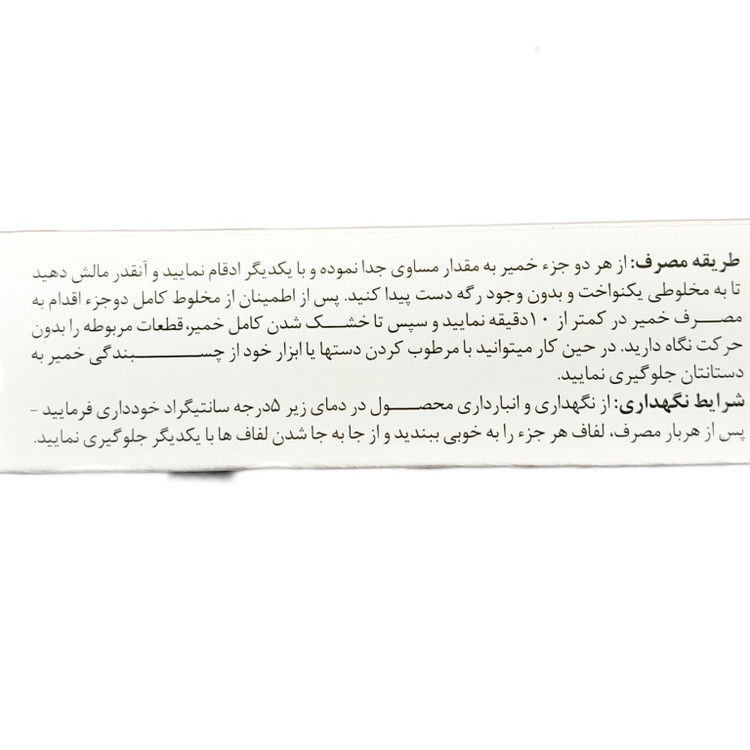 طریقه مصرف: از هر دو جزء خمیر به مقدار مساوی جدا نموده و با یکدیگر ادقام نمایید و آنقدر مالش دهید
تا به مخلوطی یکنواخت و بدون وجود رگه دست پیدا کنید. پس از اطمینان از مخلوط کامل دوجزء اقدام به
مصرف خمیر در کمتر از ۱۰دقیقه نمایید و سپس تا خشک شدن کامل خمیر،قطعات مربوطه را بدون
حرکت نگاه دارید. در حین کار میتوانید با مرطوب کردن دستها یا ابزار خود از چسبندگی خمیر به
دستانتان جلوگیری نمایید.
شرایط نگهداری: از نگهداری و انبارداری محصول در دمای زیر ۵درجه سانتیگراد خودداری فرمایید -
پس از هربار مصرف، لفاف هر جزء را به خوبی ببندید و از جا به جا شدن لفاف ها با یکدیگر جلوگیری نمایید.